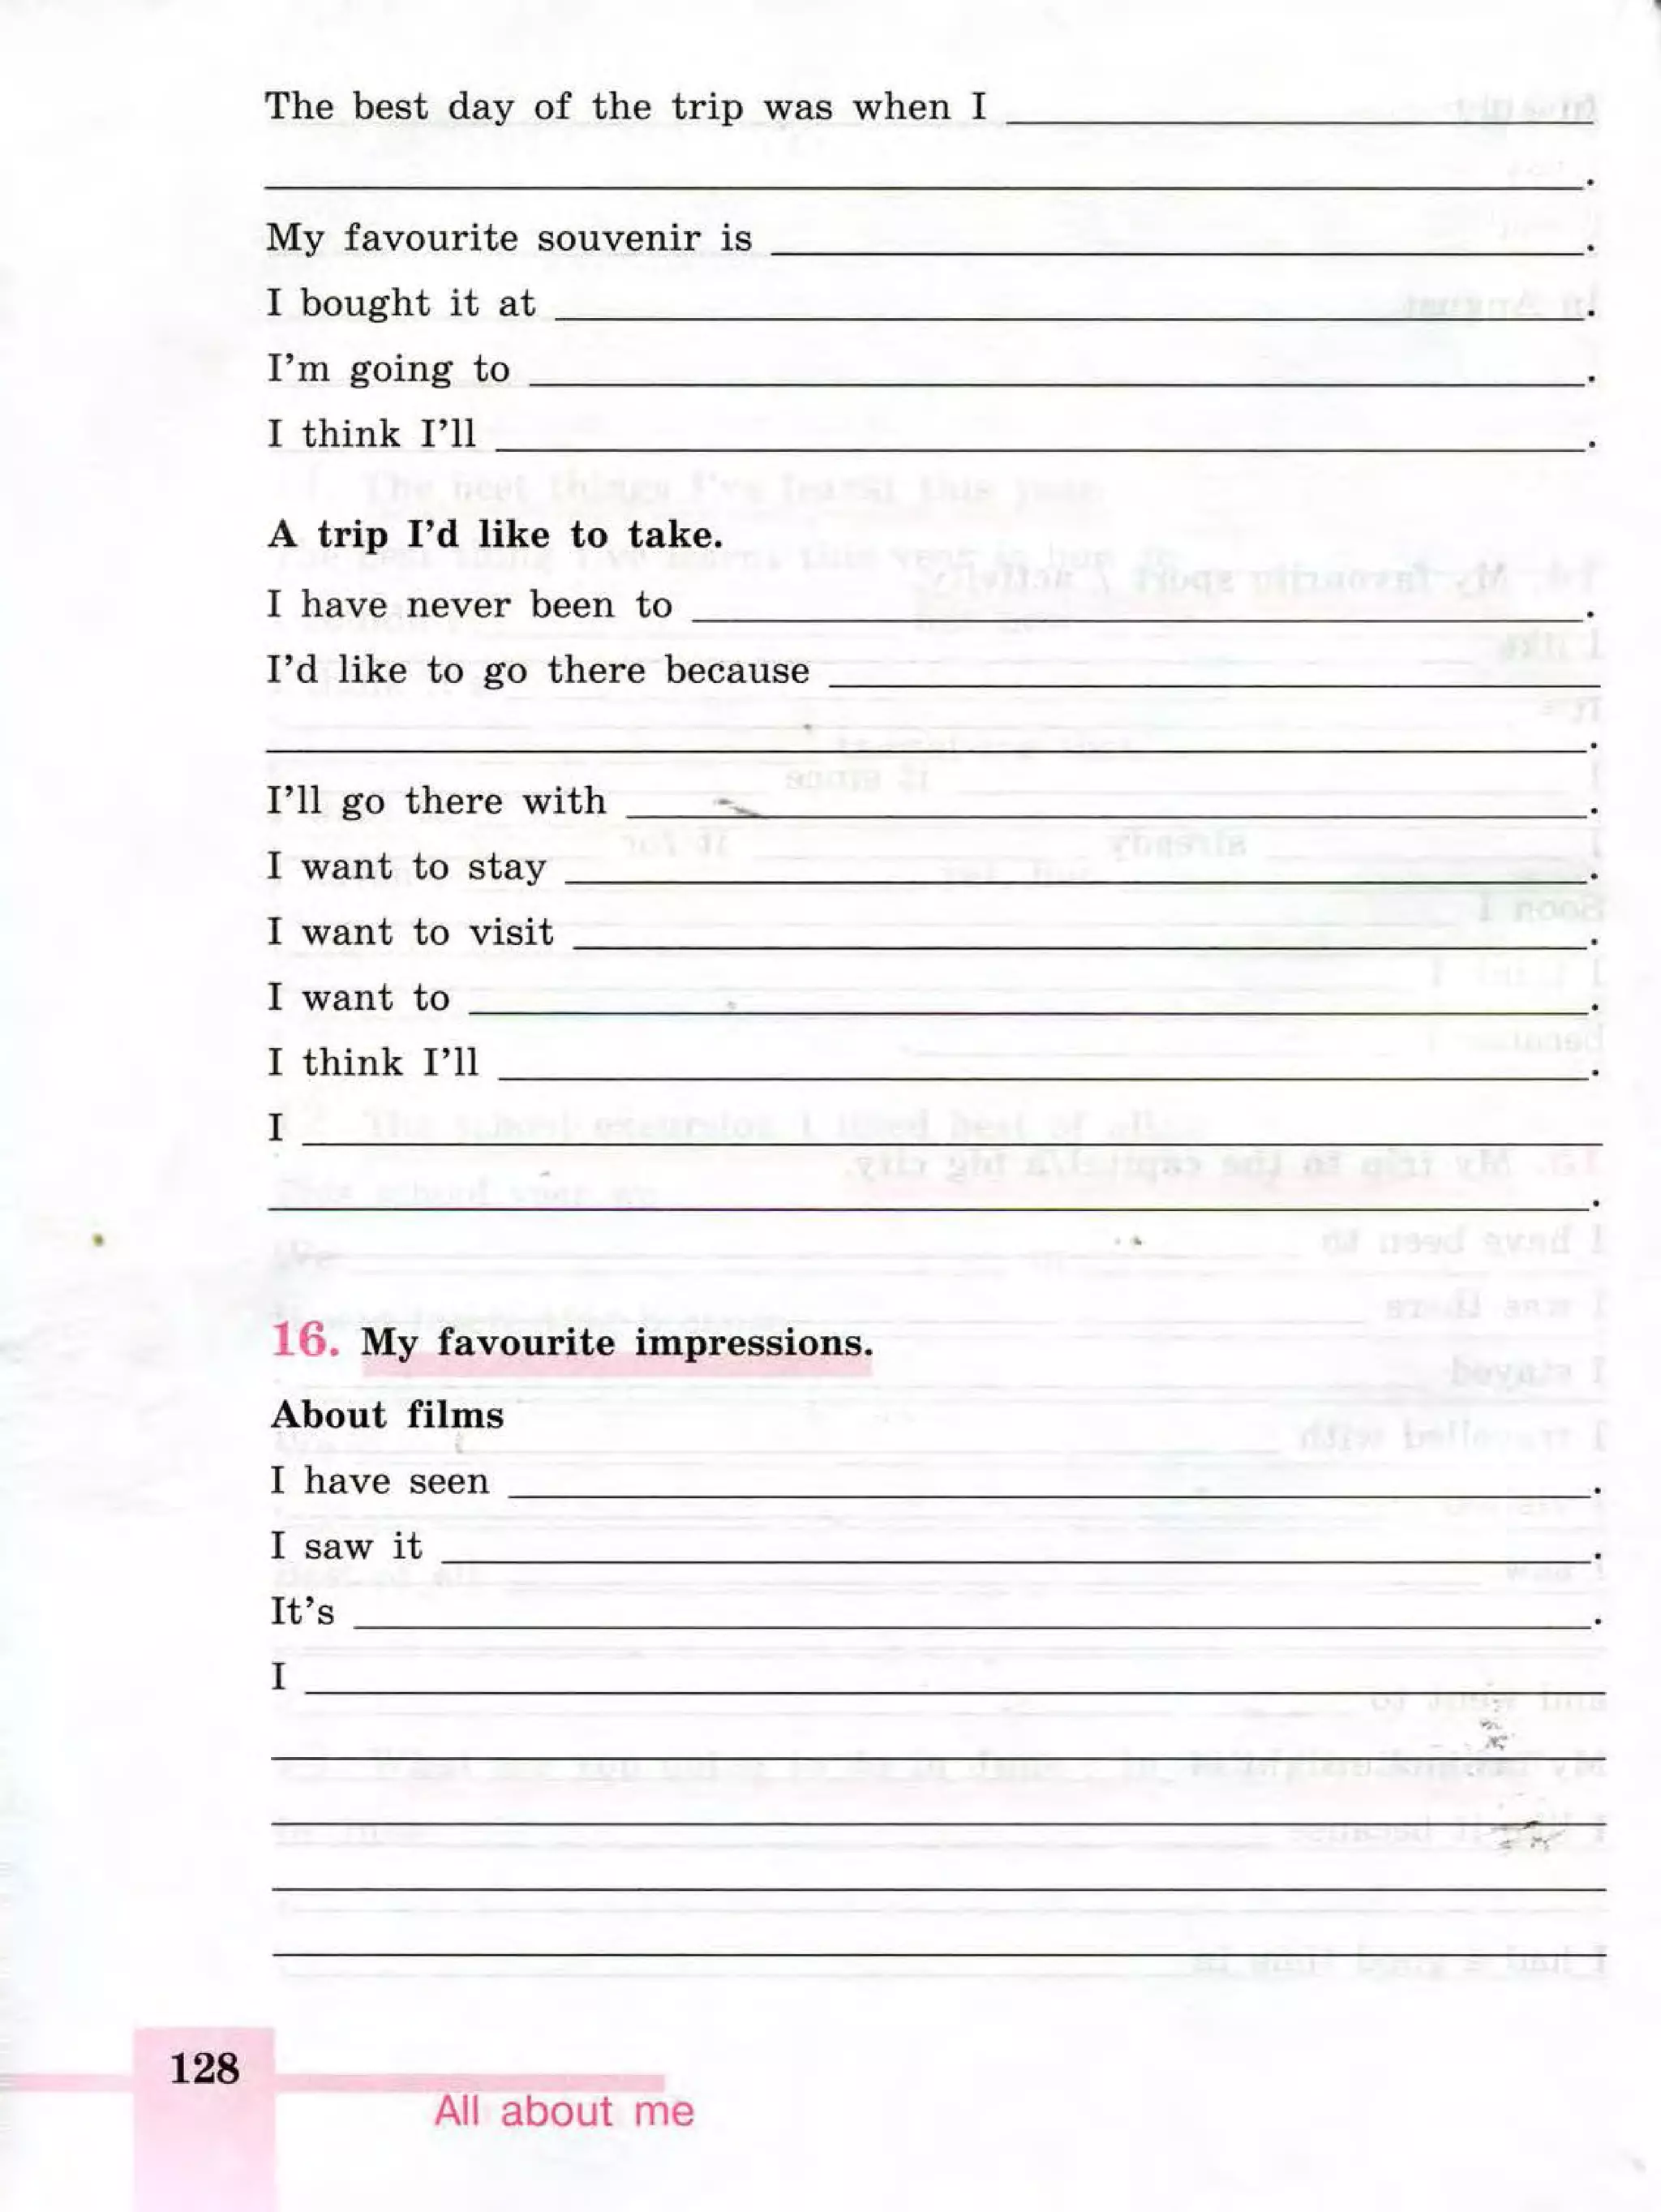 The best day of the trip was when I
.
My favourite souvenir is .
I bought it at .
I'm going to .
I think I'll .
A trip I'd like to take.
I have never been to .
I'd like to go there because
.
I'll go there with .
I want to stay .
I want to visit .
I want to .
I think I'll .
I
.
16. My favourite impressions.
About films
I have seen .
I saw it .
It's .
I
128
All about me